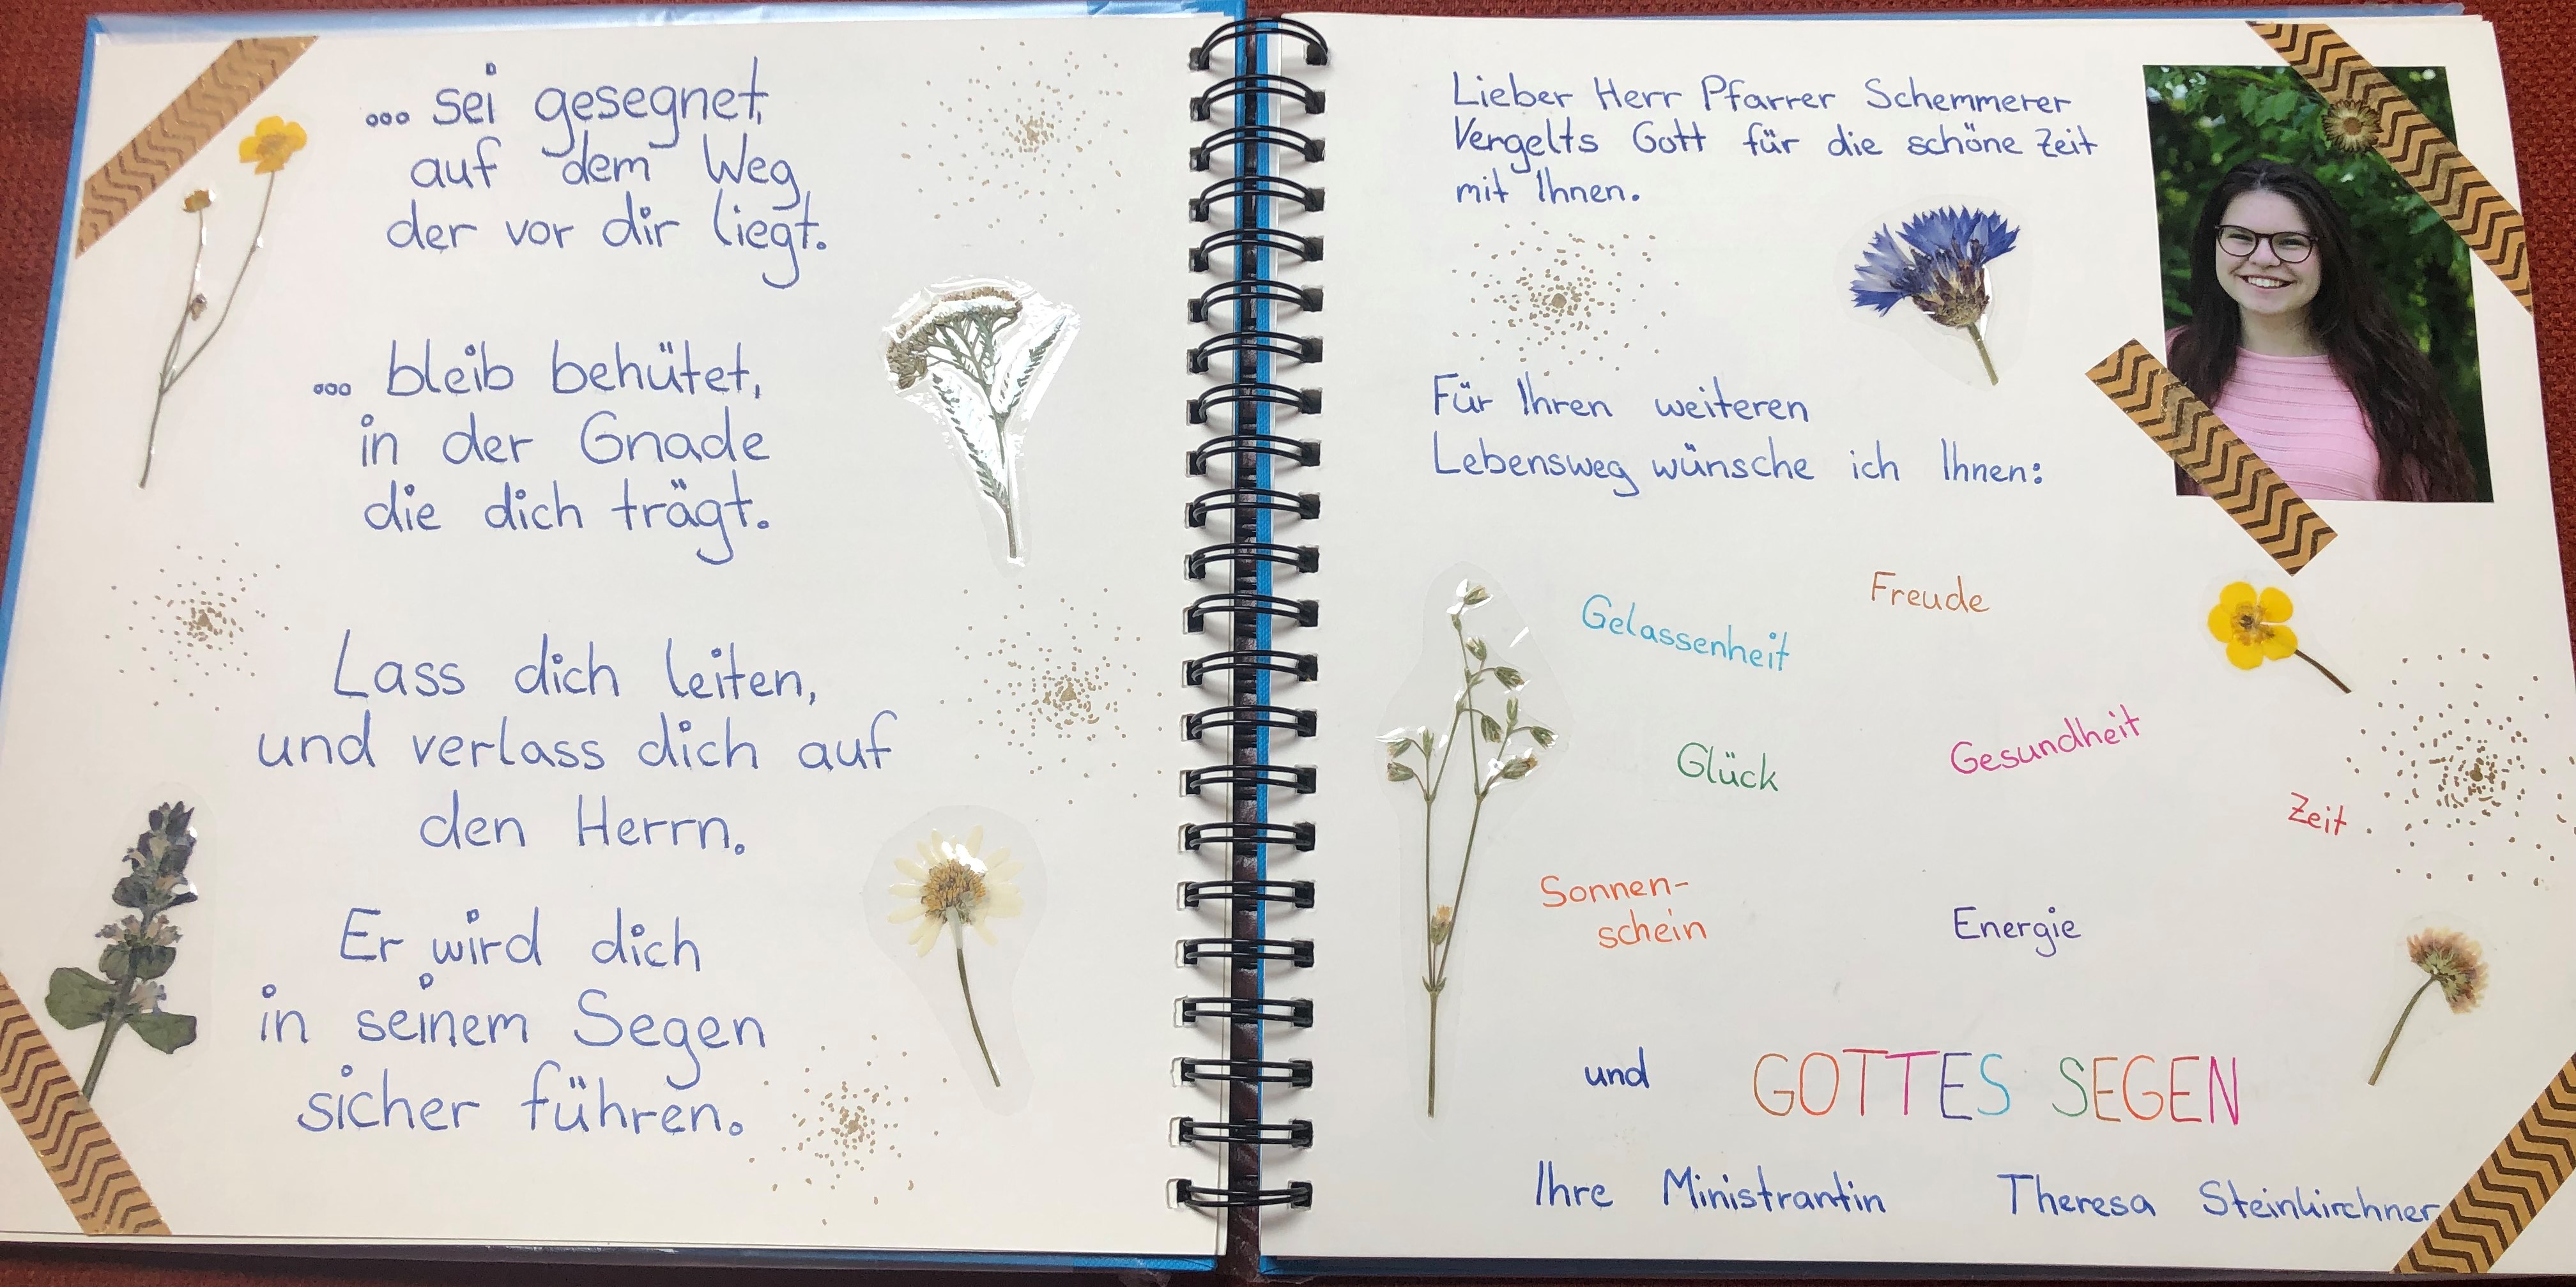 ... sei gesegnet,
auf dem Weg,
der vor dir liegt.
... bleib behütet,
in der Gnade
die dich trägt.
Lass dich leiten,
und verlass dich auf
den Herrn.
Er wird dich
in seinem Segen
sicher führen.
Lieber Herr Pfarrer Schemmerer
Vergelts Gott für die schöne Zeit
mit Ihnen.
Für Ihren weiteren
Lebensweg wünsche ich Ihnen:
Freude
Gelassenheit
Gesundheit
Glück
Zeit
Sonnen-
schein
Energie
und GOTTES SEGEN
Ihre Ministrantin Theresa Steinkirchner